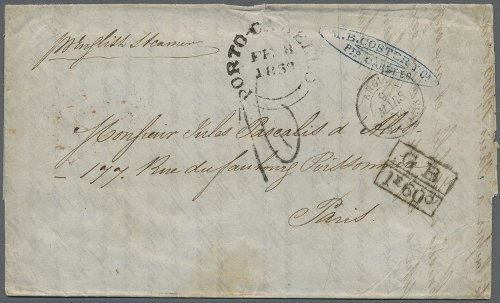 pr English Steamer
PORTO-CABELLO
FEB 8
1859
M. B. COSTER & Co
PTO CABELLO
10
Monsieur Jules Pascalis d'
177. Rue du faubourg Poissonnière
Paris.
G B
1F 60C